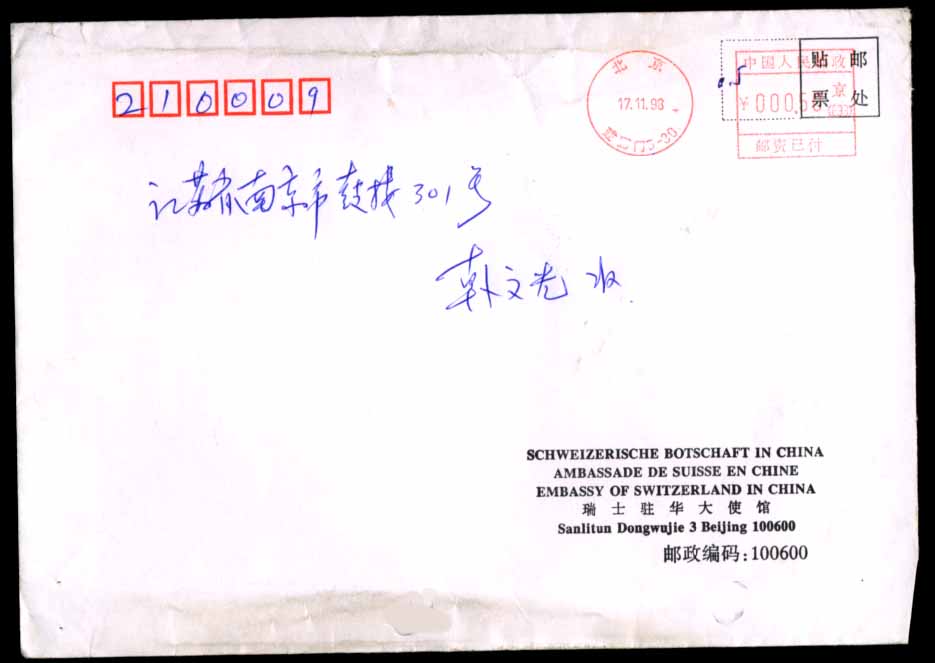 210009
北京
17.11.93
0.5
中国人民邮政
¥000.50
京
邮资已付
贴 邮
票 处
江苏省南京市鼓楼301号
韩文光 收
SCHWEIZERISCHE BOTSCHAFT IN CHINA
AMBASSADE DE SUISSE EN CHINE
EMBASSY OF SWITZERLAND IN CHINA
瑞士驻华大使馆
Sanlitun Dongwujie 3 Beijing 100600
邮政编码:100600